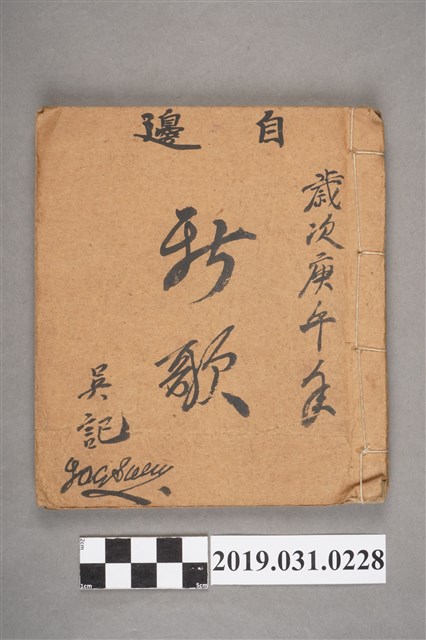 自邊
歲次庚午年
新歌
吳記
2019.031.0228
2cm
1cm
5cm